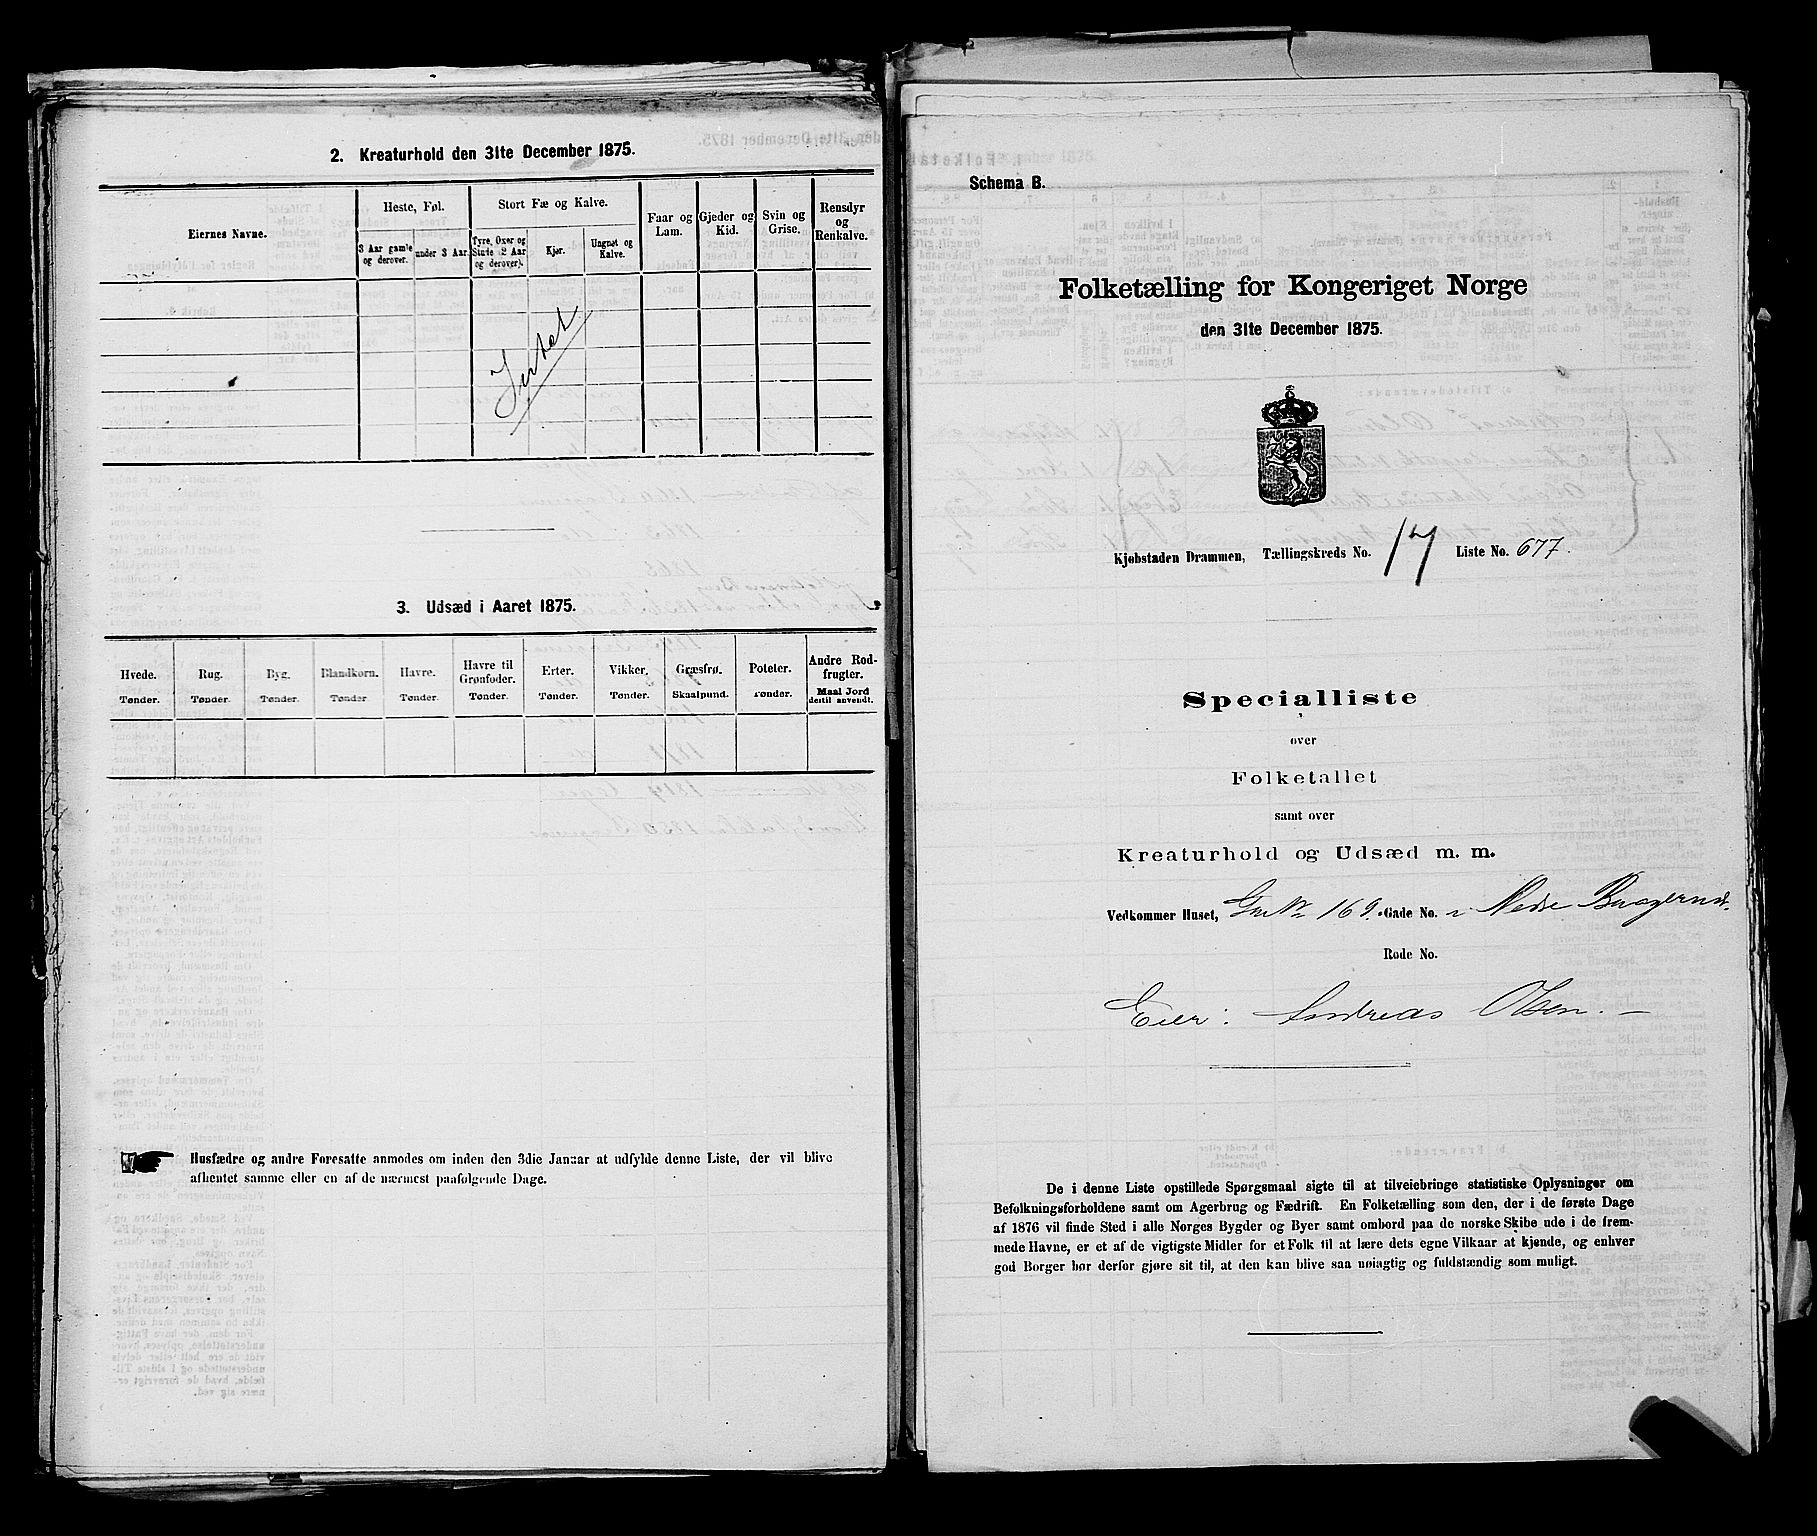 2. Kreaturhold den 31te December 1875.
Eiernes Navne.
Heste, Føl.
Stort Fæ og Kalve.
Faar og Lam.
Gjeder og Kid.
Svin og Grise.
Rensdyr og Renkalve.
3 Aar gamle og derover.
under 3 Aar.
Tyre, Oxer og Stude (2 Aar og derover).
Kjør.
Ungnøt og Kalve.
Intet
3. Udsæd i Aaret 1875.
Hvede. Rug. Byg. Blandkorn. Havre. Havre til Grønfoder. Erter. Vikker. Græsfrø. Poteter. Andre Rodfrugter.
Tønder. Tønder. Tønder. Tønder. Tønder. Tønder. Tønder. Tønder. Skaalpund. Tønder. Maal Jord dertil anvendt.
Husfædre og andre Foresatte anmodes om inden den 3die Januar at udfylde denne Liste, der vil blive
afhentet samme eller en af de nærmest paafølgende Dage.
Schema B.
Folketælling for Kongeriget Norge
den 31te December 1875.
Kjøbstaden Drammen, Tællingskreds No. 17 Liste No. 677.
Specialliste
over
Folketallet
samt over
Kreaturhold og Udsæd m. m.
Vedkommer Huset, 169. Gade No. Nedre
Rode No.
Eier: Andreas Olsen. —
De i denne Liste opstillede Spørgsmaal sigte til at tilveiebringe statistiske Oplysninger om
Befolkningsforholdene samt om Agerbrug og Fædrift. En Folketælling som den, der i de første Dage
af 1876 vil finde Sted i alle Norges Bygder og Byer samt ombord paa de norske Skibe ude i de frem-
mede Havne, er et af de vigtigste Midler for et Folk til at lære dets egne Vilkaar at kjende, og enhver
god Borger bør derfor gjøre sit til, at den kan blive saa nøiagtig og fuldstændig som muligt.